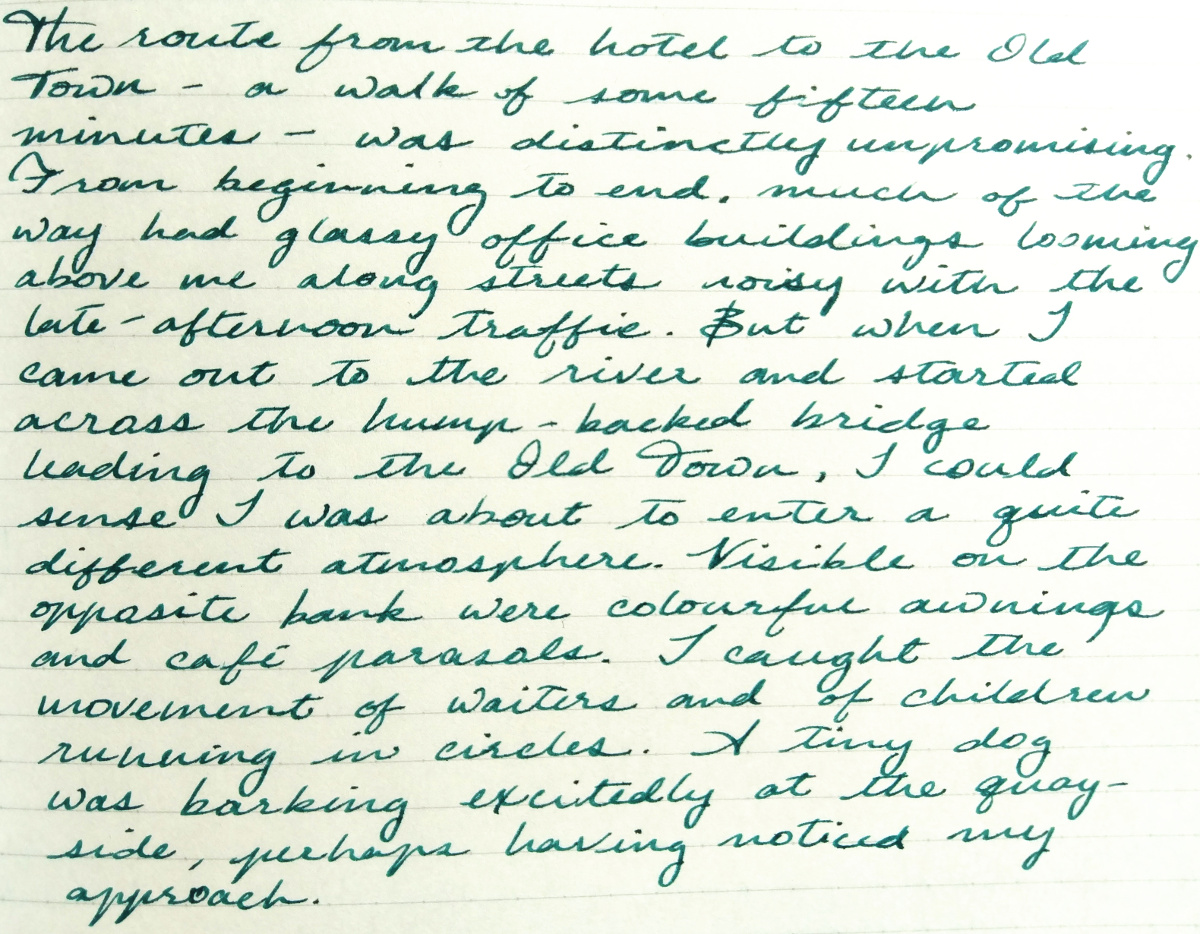 The route from the hotel to the Old
Town - a walk of some fifteen
minutes - was distinctly unpromising.
From beginning to end, much of the
way had glassy office buildings looming
above me along streets noisy with the
late-afternoon traffic. But when I
came out to the river and started
across the hump-backed bridge
leading to the Old Town, I could
sense I was about to enter a quite
different atmosphere. Visible on the
opposite bank were colourful awnings
and café parasols. I caught the
movement of waiters and of children
running in circles. A tiny dog
was barking excitedly at the quay-
side, perhaps having noticed my
approach.